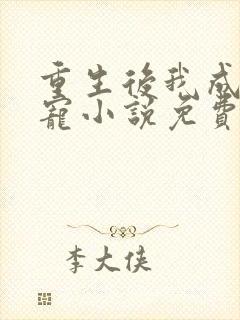 重生後我成
寵小說免費
李大俠